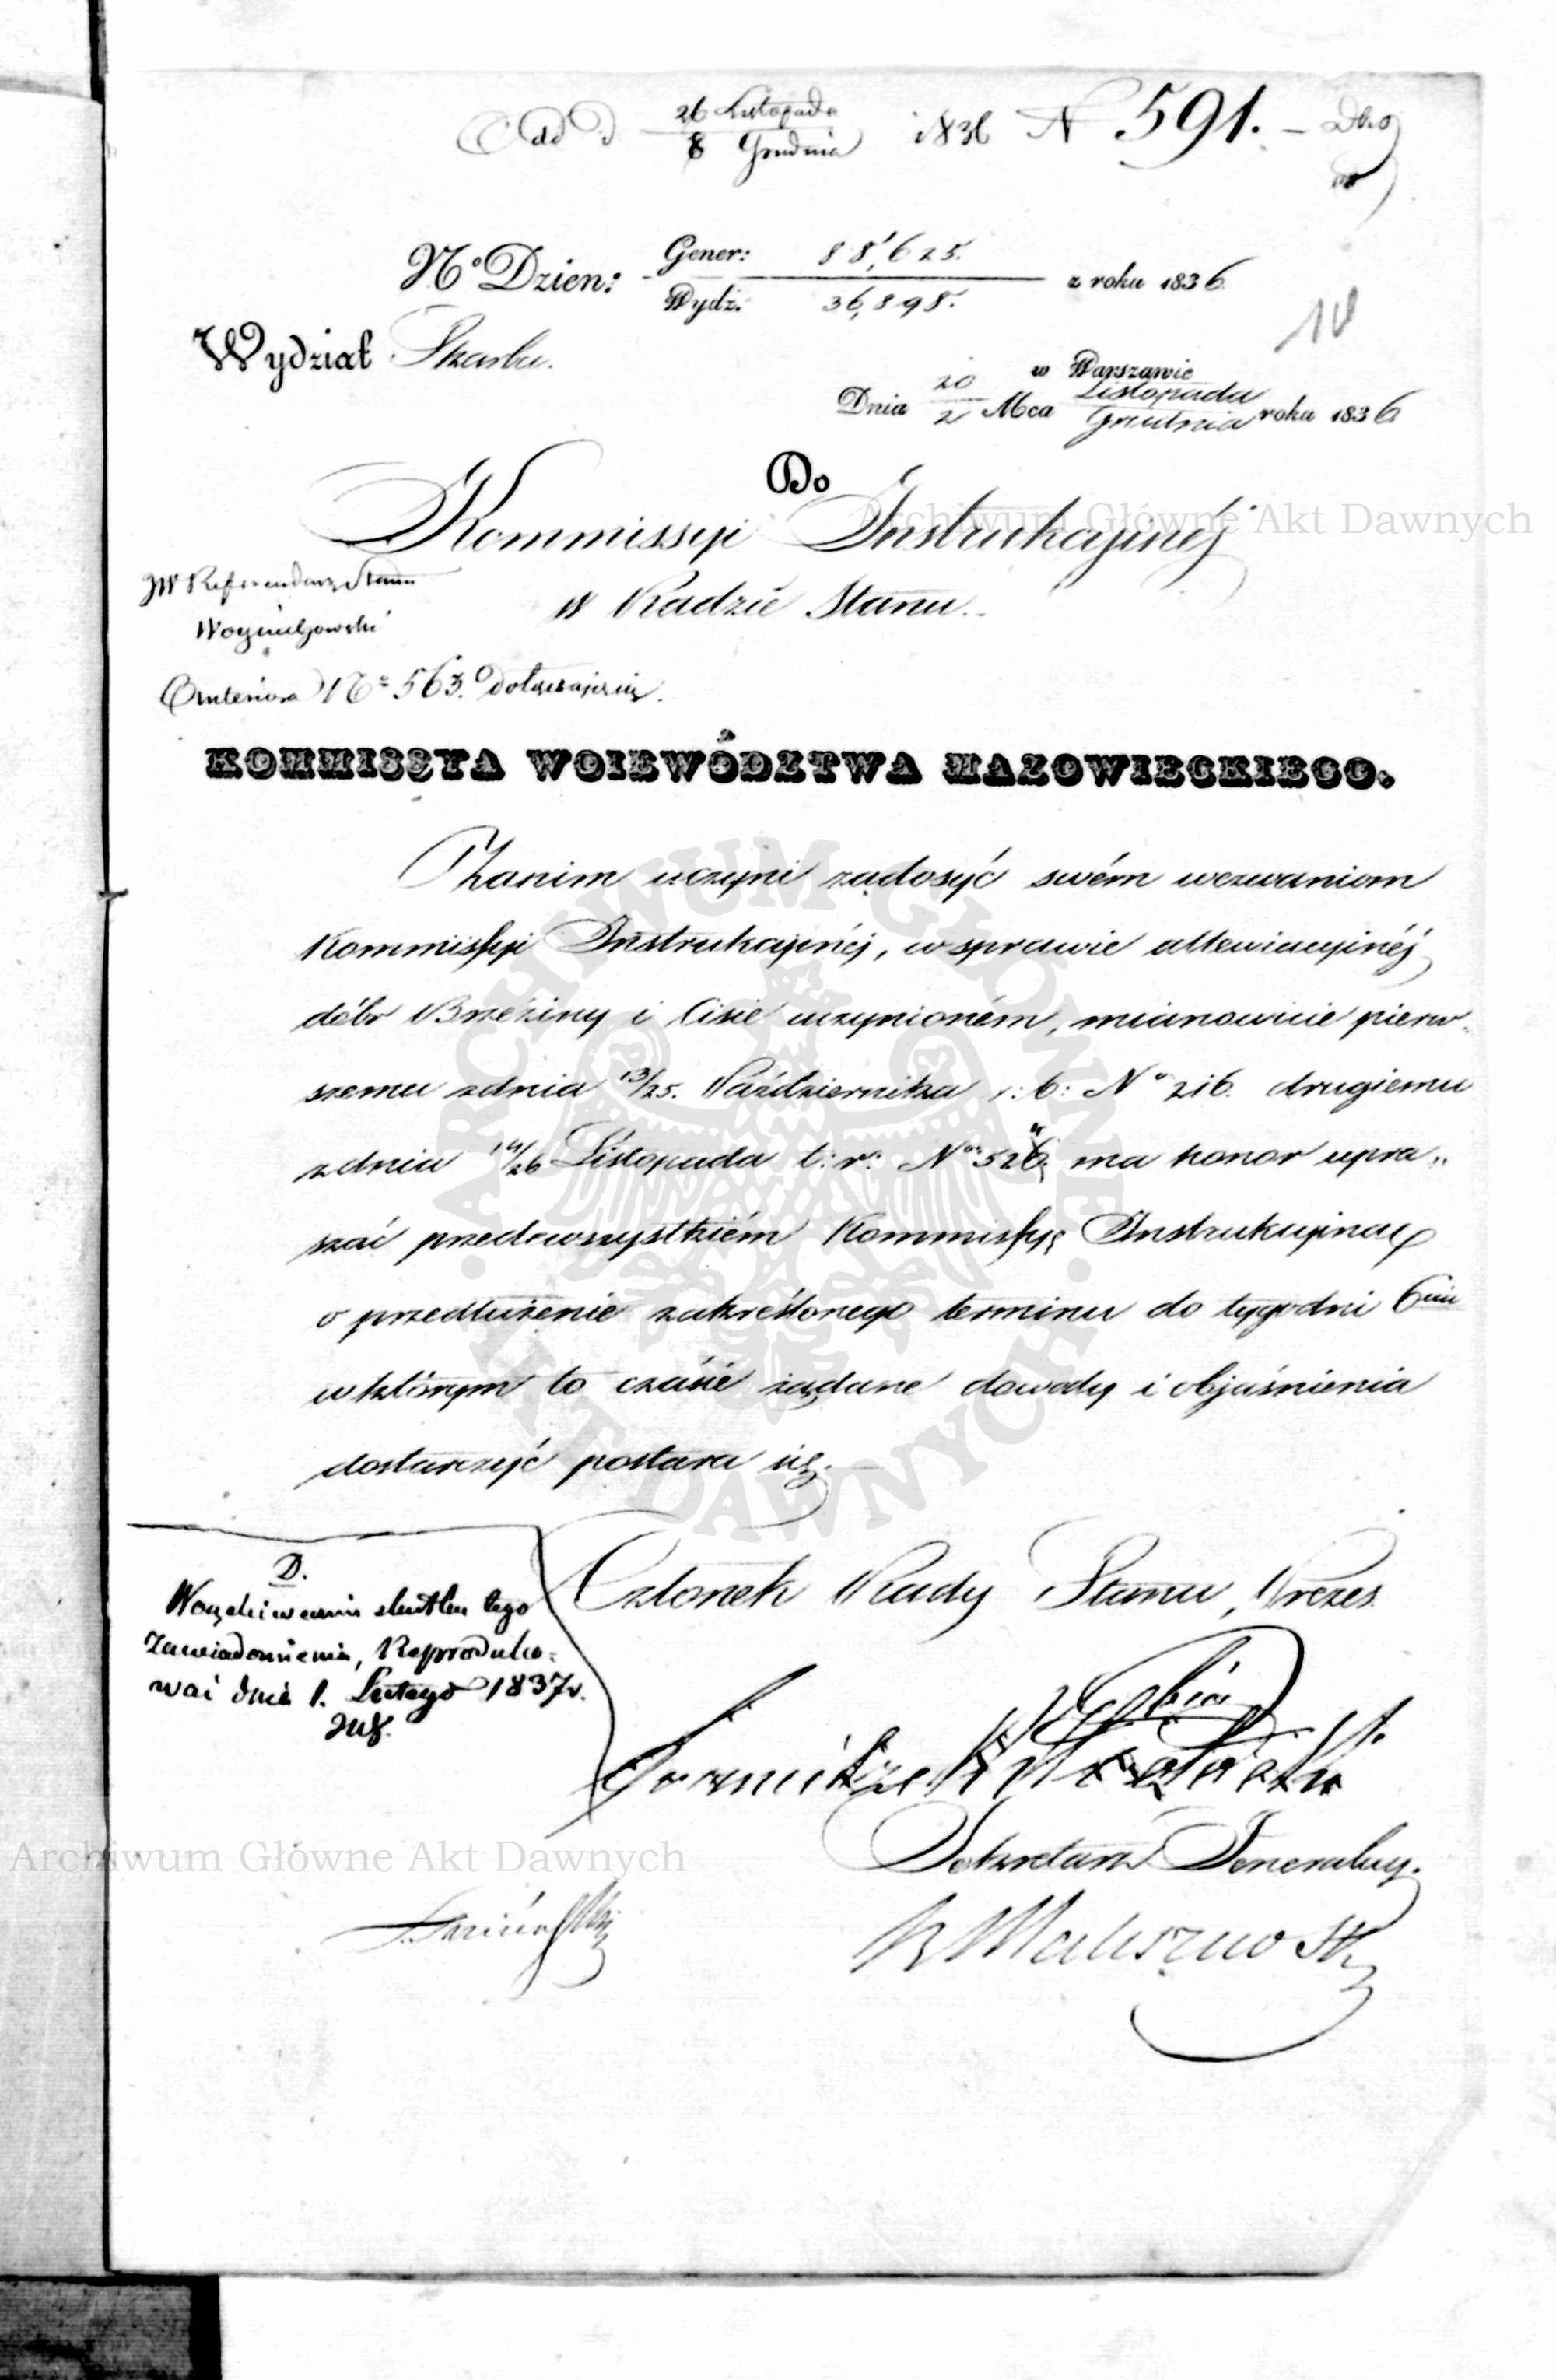 26 Listopada
8 Grudnia 1836 N 591.
No Dzien: Gener: 88,625.
Wydz. 36,898. z roku 1836
10
Wydział Skarbu.
w Warszawie
Dnia 20/2 Mca Listopada/Grudnia roku 1836
Do
Kommissyi Instrukcyinéj
w Radzie Stanu.
JW Referendarz Stanu
No 563.
KOMMISSYA WOIEWÓDZTWA MAZOWIECKIEGO.
Zanim uczyni zadosyć swém wezwaniom
Kommissyi Instrukcyinéj, w sprawie allewiacyinéj
dóbr Brzeziny i Cisie uczynioném, mianowicie pierw-
szemu z dnia 13/25. Października r: b: No 216. drugiemu
z dnia 14/26 Listopada t: r: No 526 ma honor upra„
szać przedewszystkiém Kommissyę Instrukcyiną
o przedłużenie zakreślonego terminu do tygodni 6ciu
w którym to czasie żądane dowody i objaśnienia
dostarczyć postara się.
Członek Rady Stanu, Prezes
D.
W oczekiwaniu skutku tego
Zawiadomienia, Reproduko-
wać dnia 1. Lutego 1837 r.
Sekretarz Generalny.
Archiwum Główne Akt Dawnych
Archiwum Główne Akt Dawnych
ARCHIWUM GŁÓWNE AKT DAWNYCH